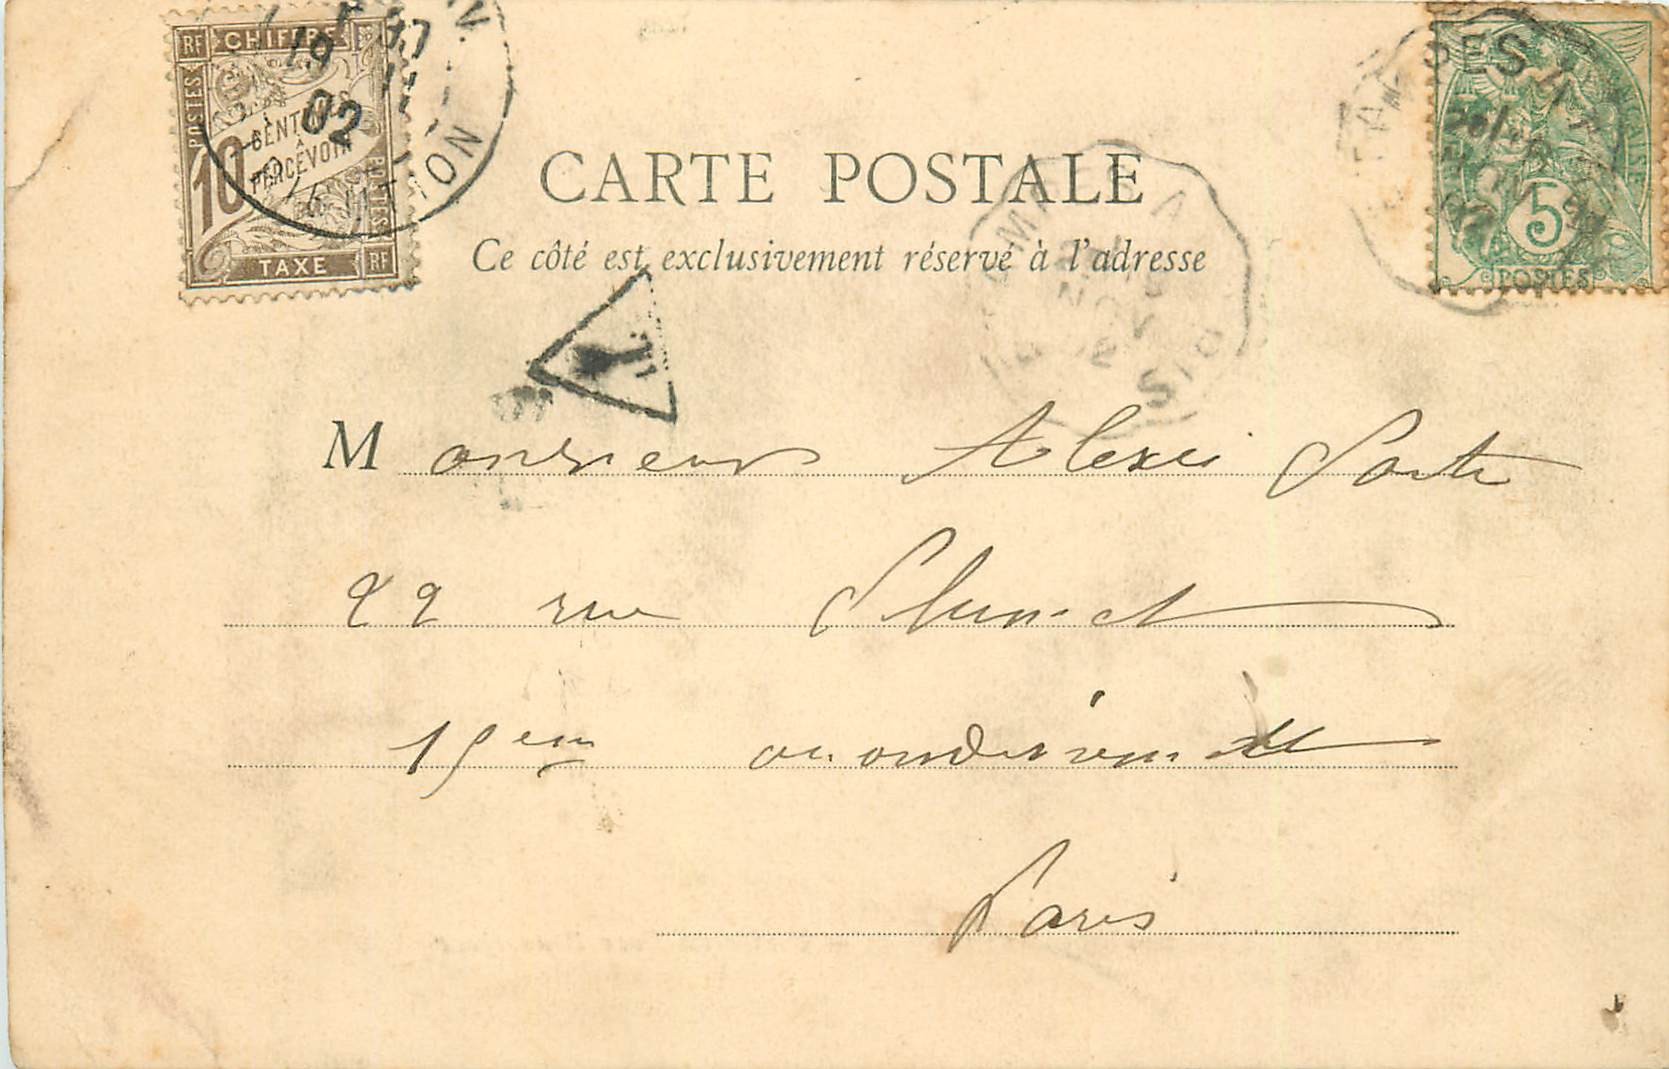 RF CHIFFRE
POSTES
10
CENTIMES
À
PERCEVOIR
TAXE RF
19
02
5
POSTES
CARTE POSTALE
Ce côté est exclusivement réservé à l'adresse
NOV
T
Monsieur Alexis Porte
22 rue Plumet
15ème arrondissement
Paris